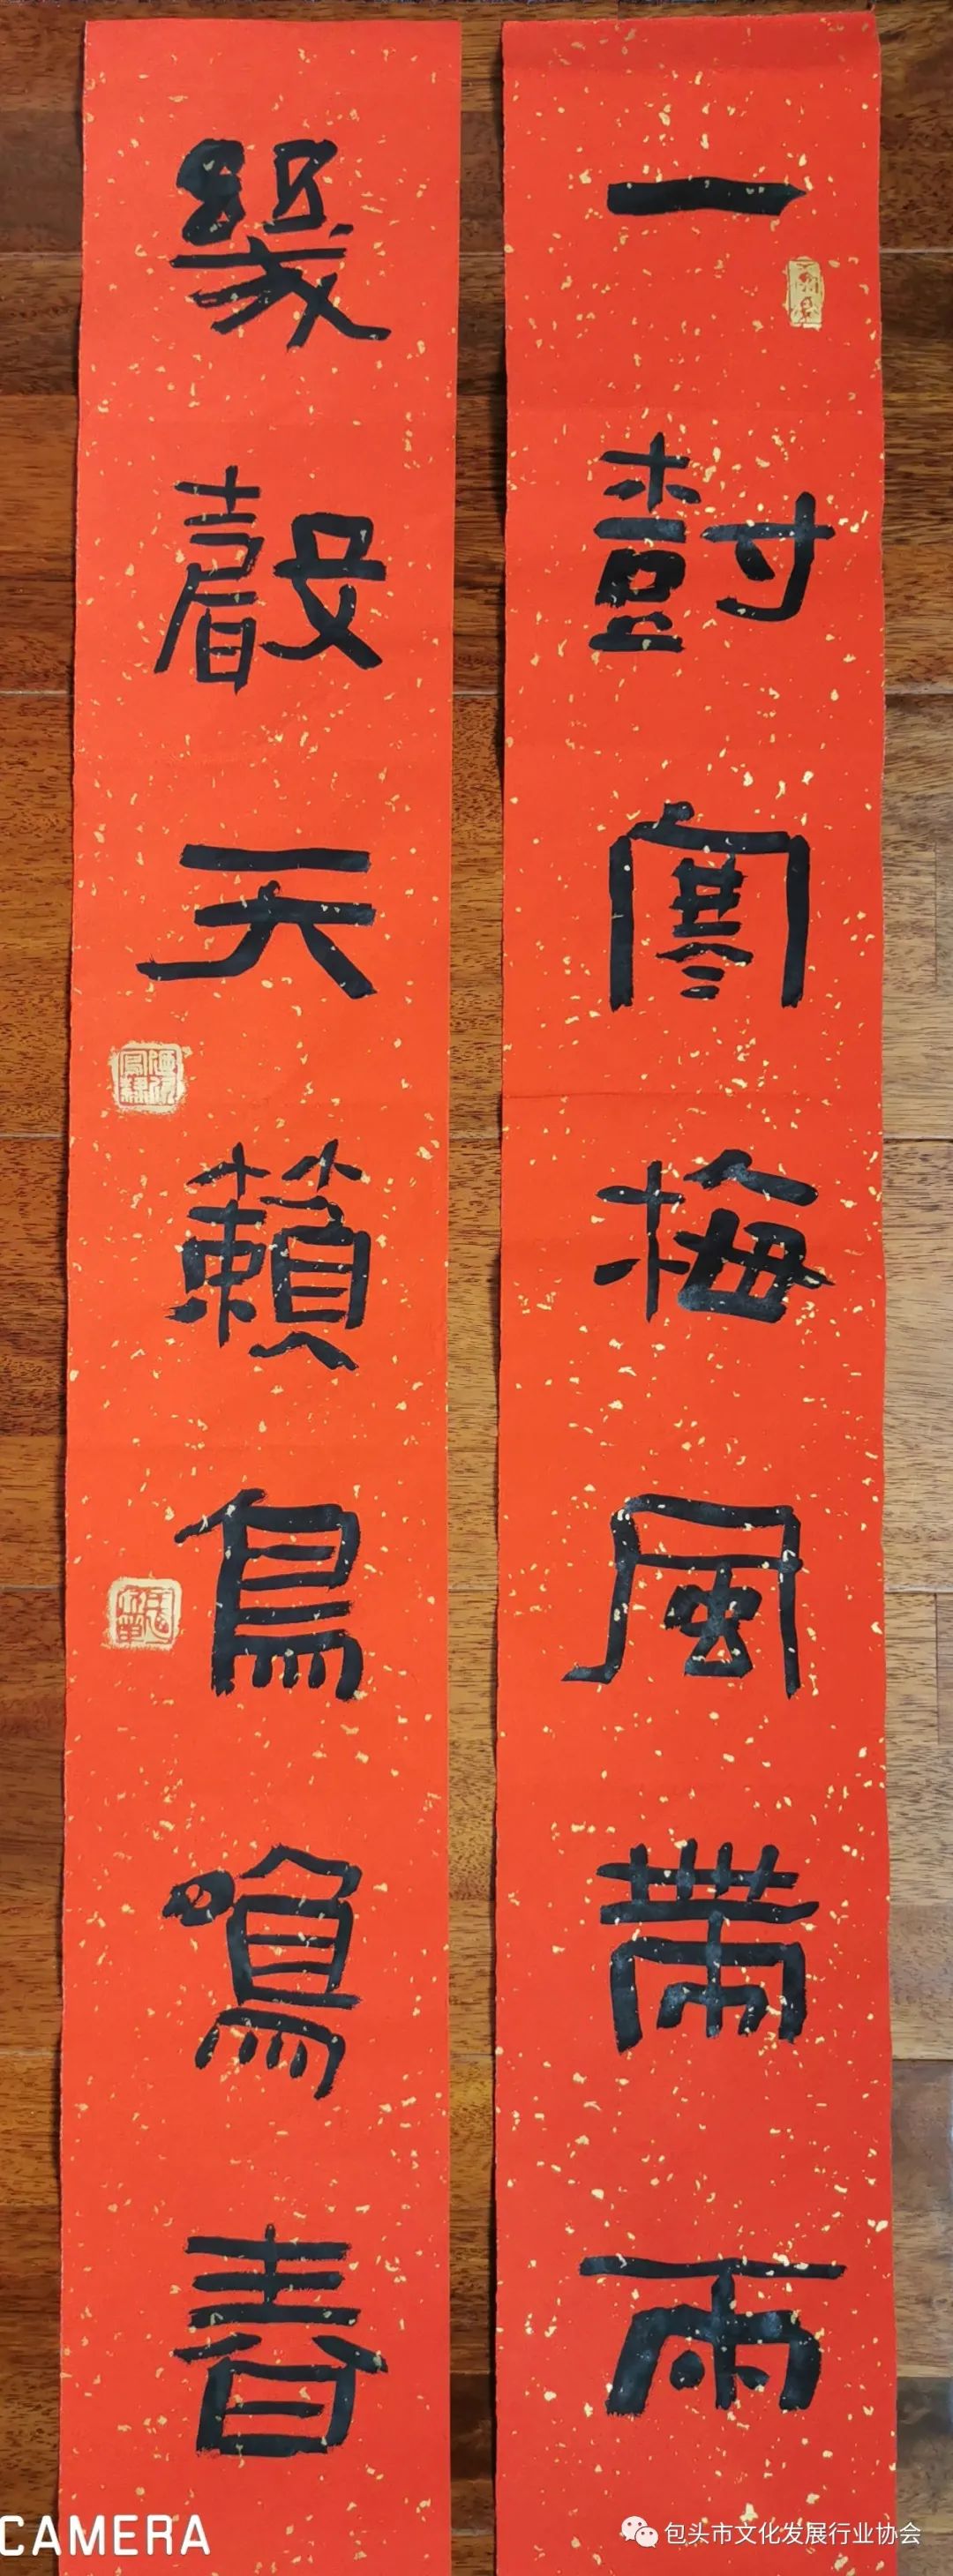 一樹寒梅風帶雨
幾聲天籟鳥鳴春
CAMERA
包头市文化发展行业协会